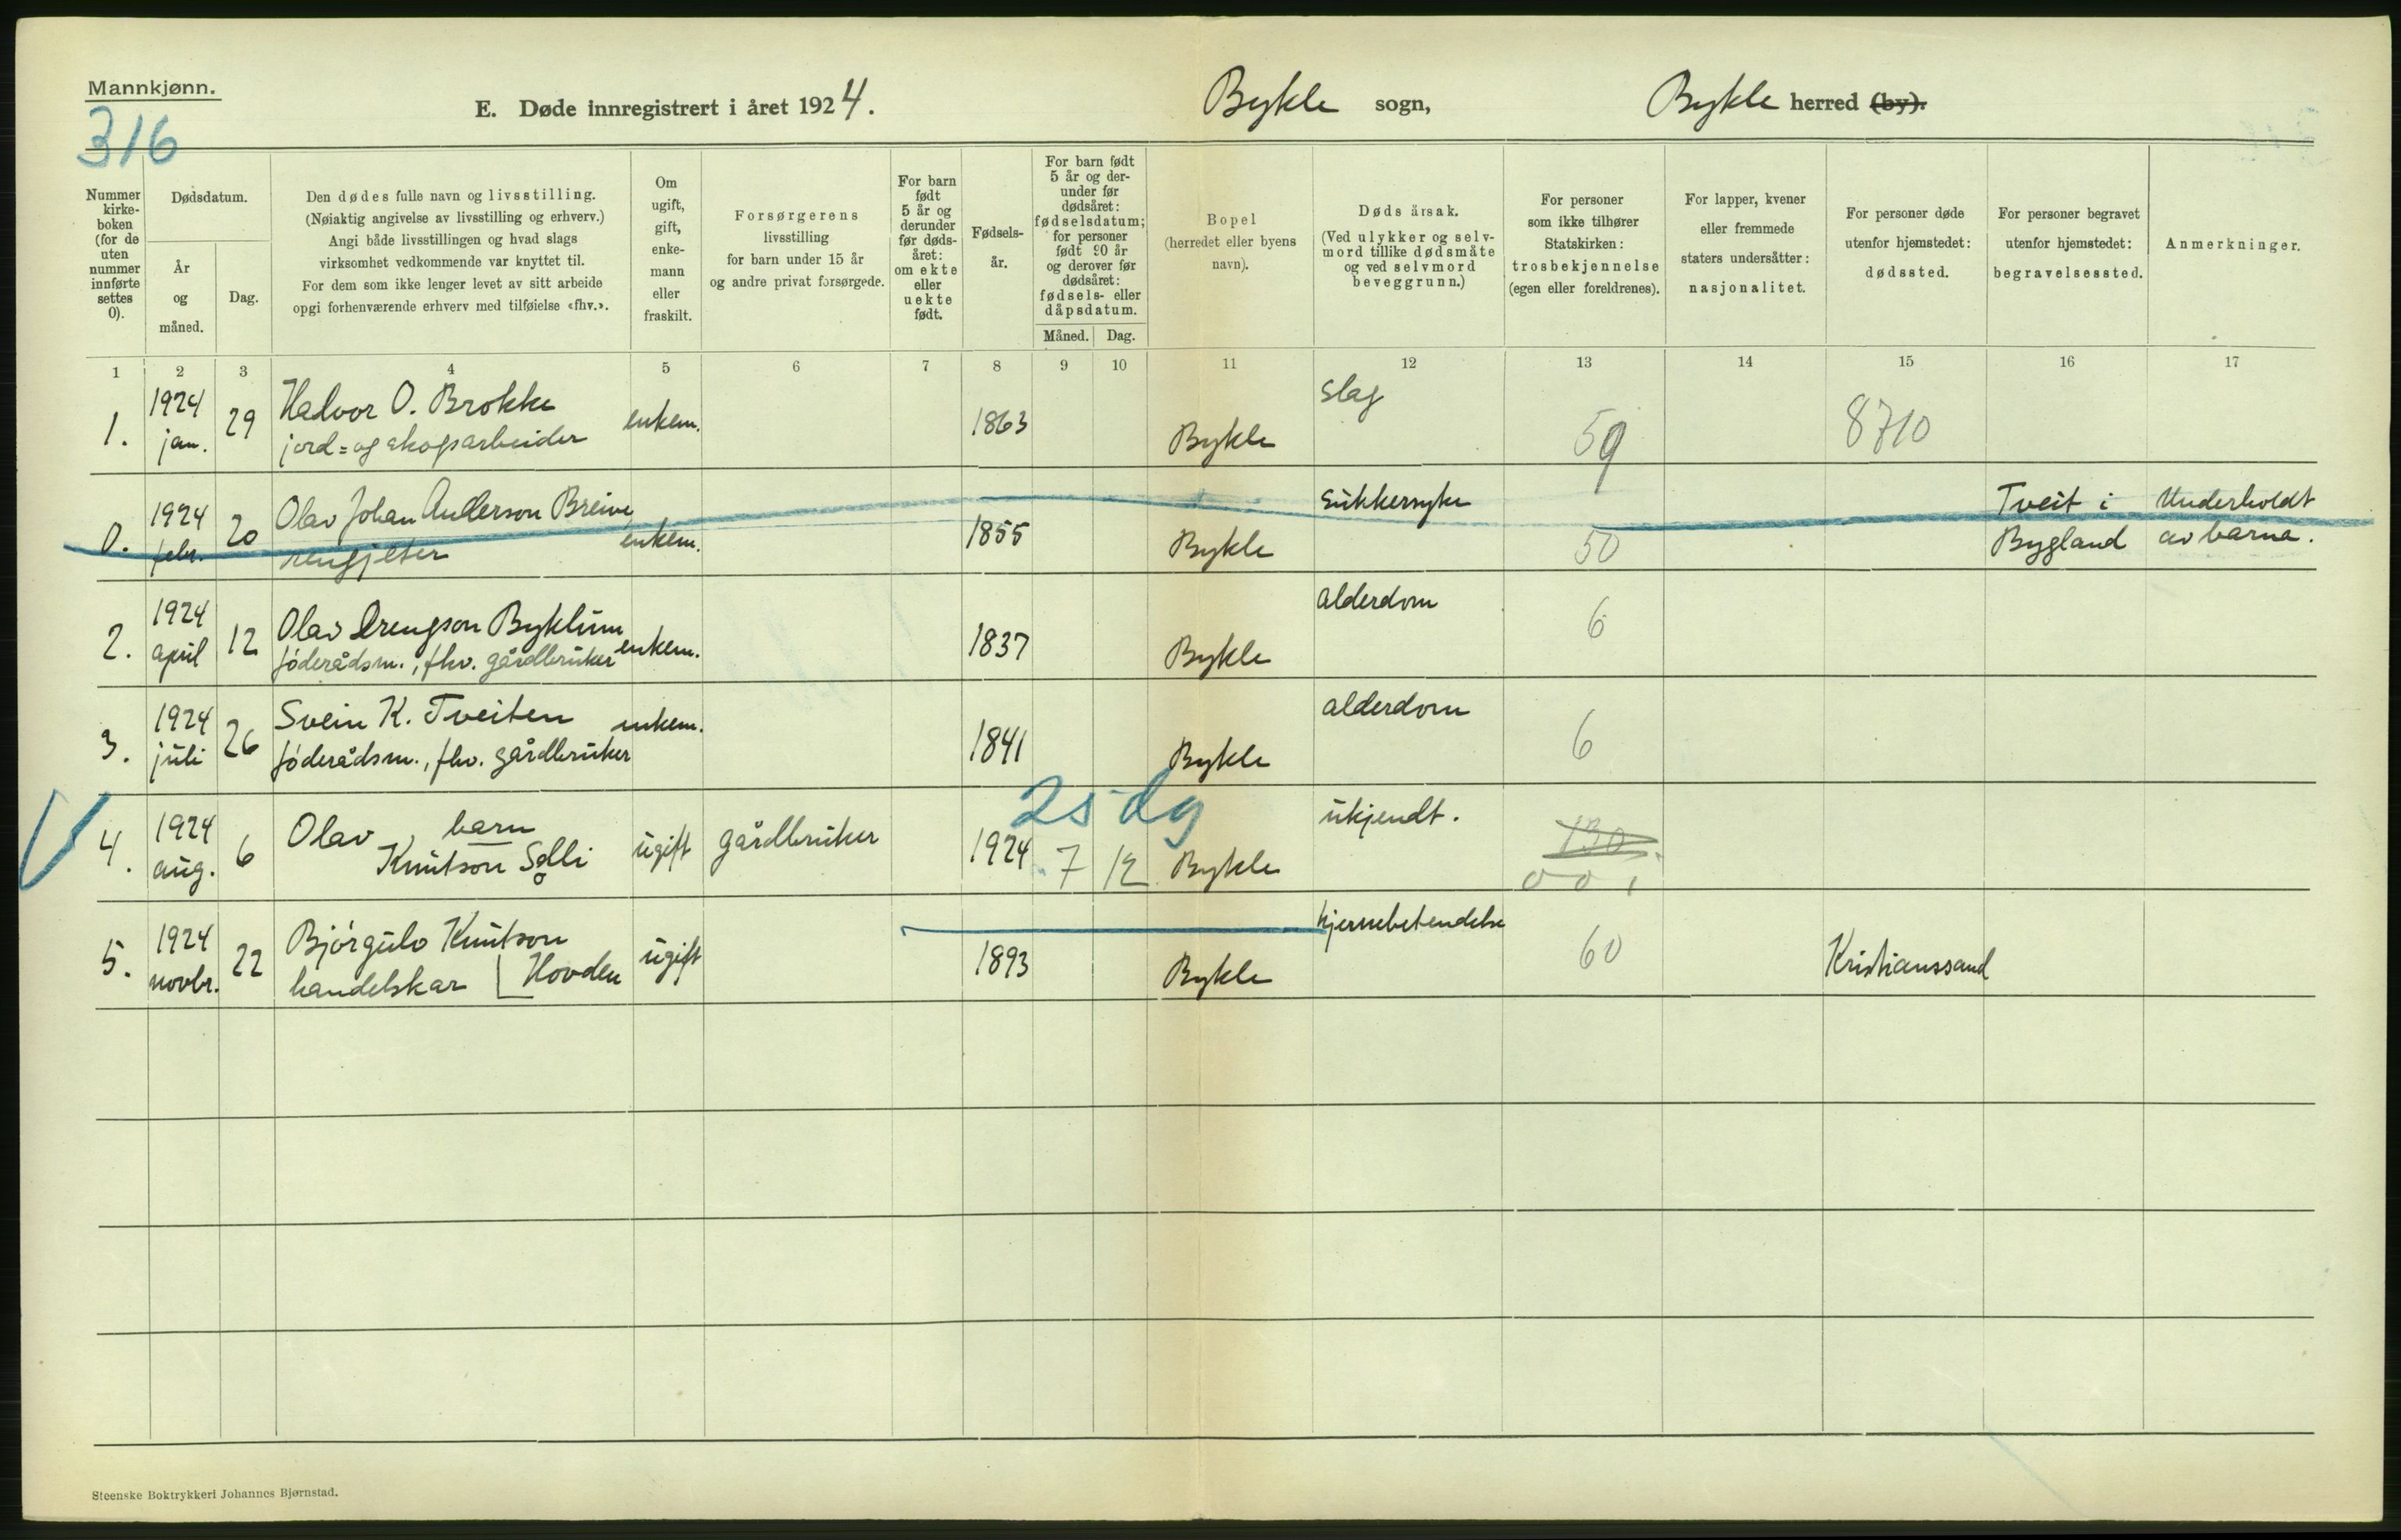 Mannkjønn.
316
E. Døde innregistrert i året 1924.
Bykle sogn,
Bykle herred (by).
Nummer kirke-boken (for de uten nummer innførte settes 0).
Dødsdatum.
År og måned.
Dag.
Den dødes fulle navn og livsstilling.
(Nøiaktig angivelse av livsstilling og erhverv.)
Angi både livsstillingen og hvad slags
virksomhet vedkommende var knyttet til.
For dem som ikke lenger levet av sitt arbeide
opgi forhenværende erhverv med tilføielse «fhv.».
Om ugift, gift, enke-mann eller fraskilt.
Forsørgerens
livsstilling
for barn under 15 år
og andre privat forsørgede.
For barn født 5 år og derunder før døds-året: om ekte eller uekte født.
Fødsels-år.
For barn født 5 år og der-under før dødsåret: fødselsdatum; for personer født 90 år og derover før dødsåret: fødsels- eller dåpsdatum.
Måned. Dag.
Bopel
(herredet eller byens
navn).
Dødsårsak.
(Ved ulykker og selv-
mord tillike dødsmåte
og ved selvmord
beveggrunn.)
For personer
som ikke tilhører
Statskirken:
trosbekjennelse
(egen eller foreldrenes).
For lapper, kvener
eller fremmede
staters undersåtter:
nasjonalitet.
For personer døde
utenfor hjemstedet:
dødssted.
For personer begravet
utenfor hjemstedet:
begravelsessted.
Anmerkninger.
1 2 3 4 5 6 7 8 9 10 11 12 13 14 15 16 17
1. 1924 jan. 29 Halvor O. Brokke
jord= og skogsarbeider enkem. 1863 Bykle slag 59 8710
0. 1924 febr. 20 Olav Johan Anderson Breive
rengjeter enkem. 1855 Bykle sukkersyke 50 Tveit i Bygland Underholdt av barna.
2. 1924 april 12 Olav Drengson Byklum
föderådsm., fhv. gårdbruker enkem. 1837 Bykle alderdom 6
3. 1924 juli 26 Svein K. Tveiten
föderådsm., fhv. gårdbruker enkem. 1841 Bykle alderdom 6
25 dg
4. 1924 aug. 6 Olav barn
Knutson Solli ugift gårdbruker 1924 7 12 Bykle ukjendt. 130
0 0 1
5. 1924 novbr. 22 Björgulv Knutson
handelskar Hovden ugift 1893 Bykle hjernebetendelse 60 Kristianssand
Steenske Boktrykkeri Johannes Bjørnstad.